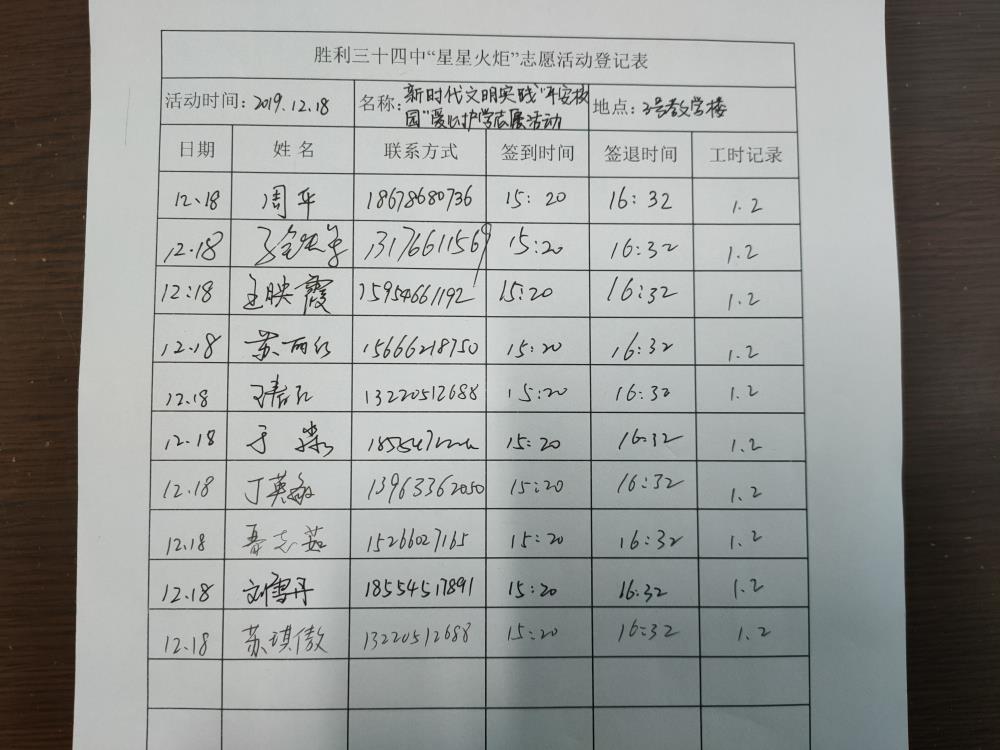 胜利三十四中“星星火炬”志愿活动登记表
活动时间：2019.12.18 名称：新时代文明实践“平安校园”爱心护学志愿活动 地点：3号教学楼
日期 姓名 联系方式 签到时间 签退时间 工时记录
12.18 周平 18678680736 15:20 16:32 1.2
12.18 13176611569 15:20 16:32 1.2
12:18 王映霞 15954661192 15:20 16:32 1.2
12.18 苏丽红 15666218750 15:20 16:32 1.2
12.18 13220512688 15:20 16:32 1.2
12.18 于 15:20 16:32 1.2
12.18 丁英敏 13963362050 15:20 16:32 1.2
12.18 聂志茹 15266027165 15:20 16:32 1.2
12.18 刘雪丹 18554517891 15:20 16:32 1.2
12.18 苏琪傲 13220512688 15:20 16:32 1.2